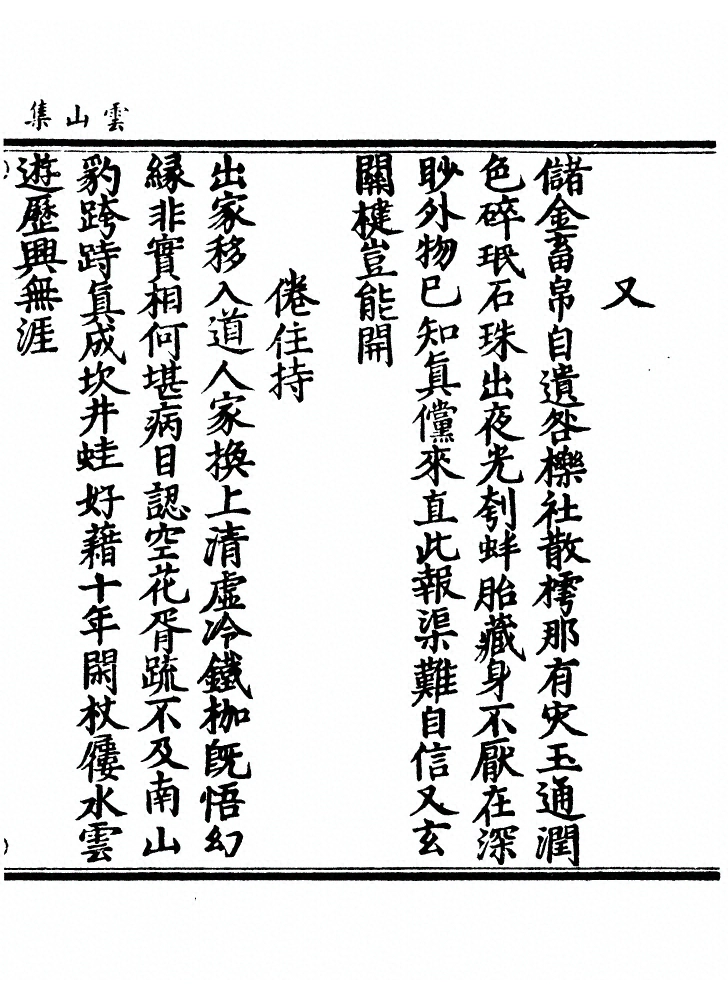 雲山集
又
儲金畜帛自遺咎櫟社散樗那有灾玉通潤
色碎珉石珠出夜光刳蚌胎藏身不厭在深
眇外物已知眞儻來直此報渠難自信又玄
關楗豈能開
倦住持
出家移入道人家換上清虛冷鐵枷旣悟幻
緣非實相何堪病目認空花胥疏不及南山
豹跨跱眞成坎井蛙好藉十年閑杖屨水雲
遊歷興無涯